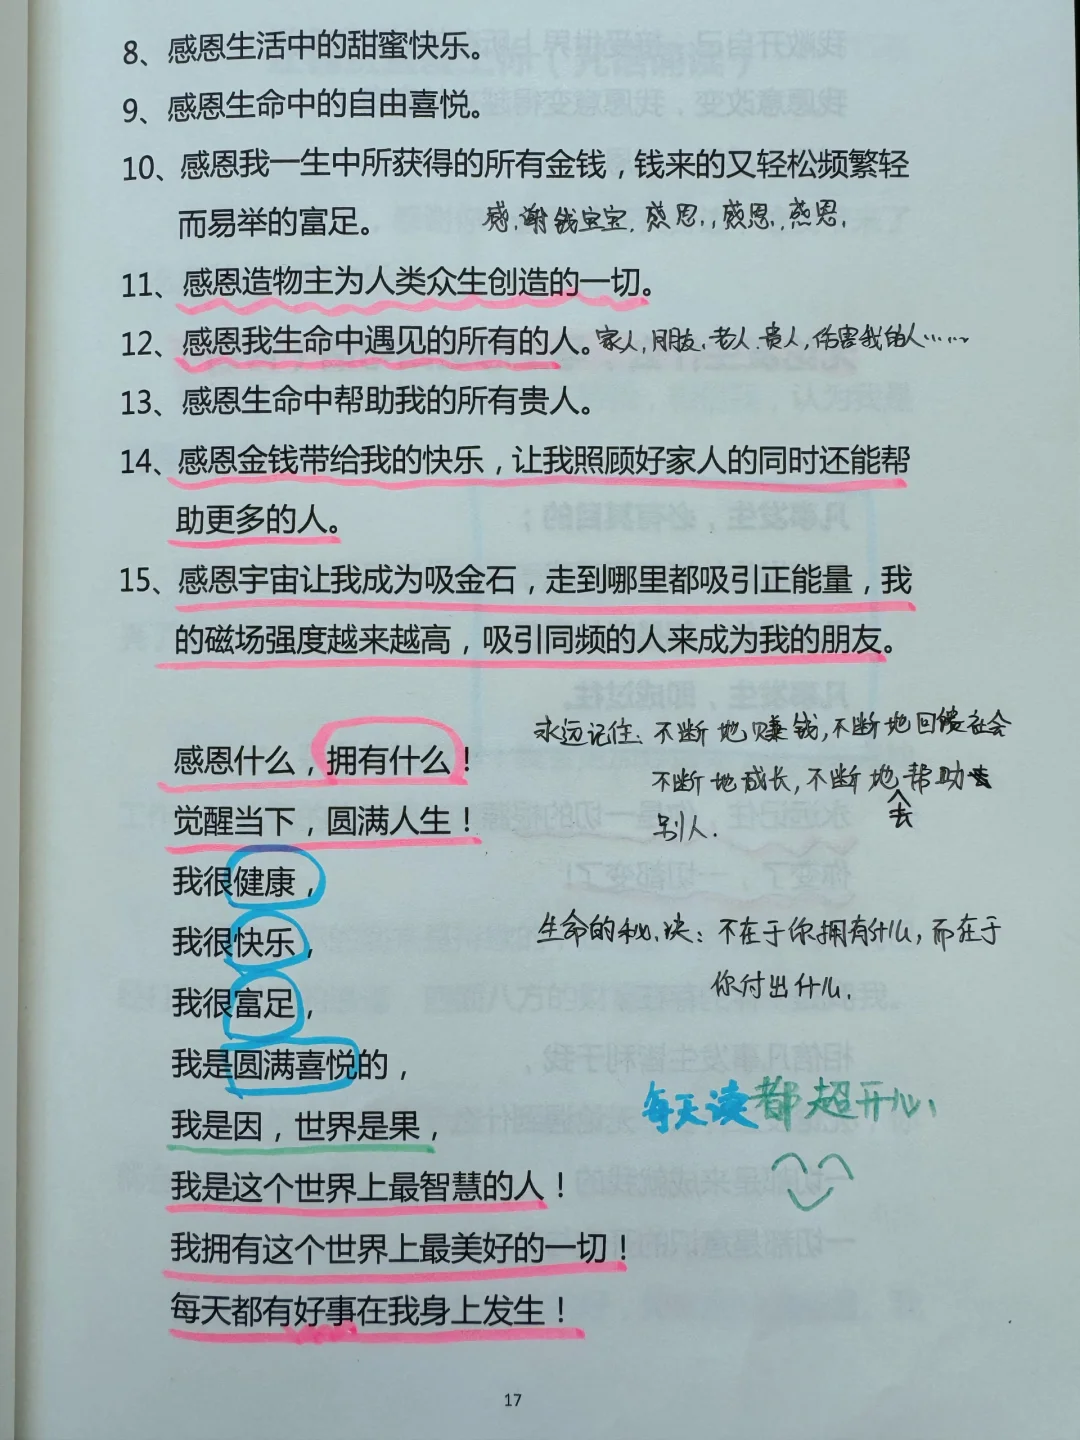 8、感恩生活中的甜蜜快乐。
9、感恩生命中的自由喜悦。
10、感恩我一生中所获得的所有金钱，钱来的又轻松频繁轻
而易举的富足。 感谢钱宝宝，感恩，感恩，感恩，
11、感恩造物主为人类众生创造的一切。
12、感恩我生命中遇见的所有的人。家人，朋友，老人，贵人，伤害我的人……
13、感恩生命中帮助我的所有贵人。
14、感恩金钱带给我的快乐，让我照顾好家人的同时还能帮
助更多的人。
15、感恩宇宙让我成为吸金石，走到哪里都吸引正能量，我
的磁场强度越来越高，吸引同频的人来成为我的朋友。
永远记住：不断地赚钱，不断地回馈社会
感恩什么，拥有什么！
不断地成长，不断地去帮助
别人.
觉醒当下，圆满人生！
我很健康，
我很快乐，
生命的秘诀：不在于你拥有什么，而在于
你付出什么.
我很富足，
我是圆满喜悦的，
每天读都超开心、
我是因，世界是果，
我是这个世界上最智慧的人！
我拥有这个世界上最美好的一切！
每天都有好事在我身上发生！
17